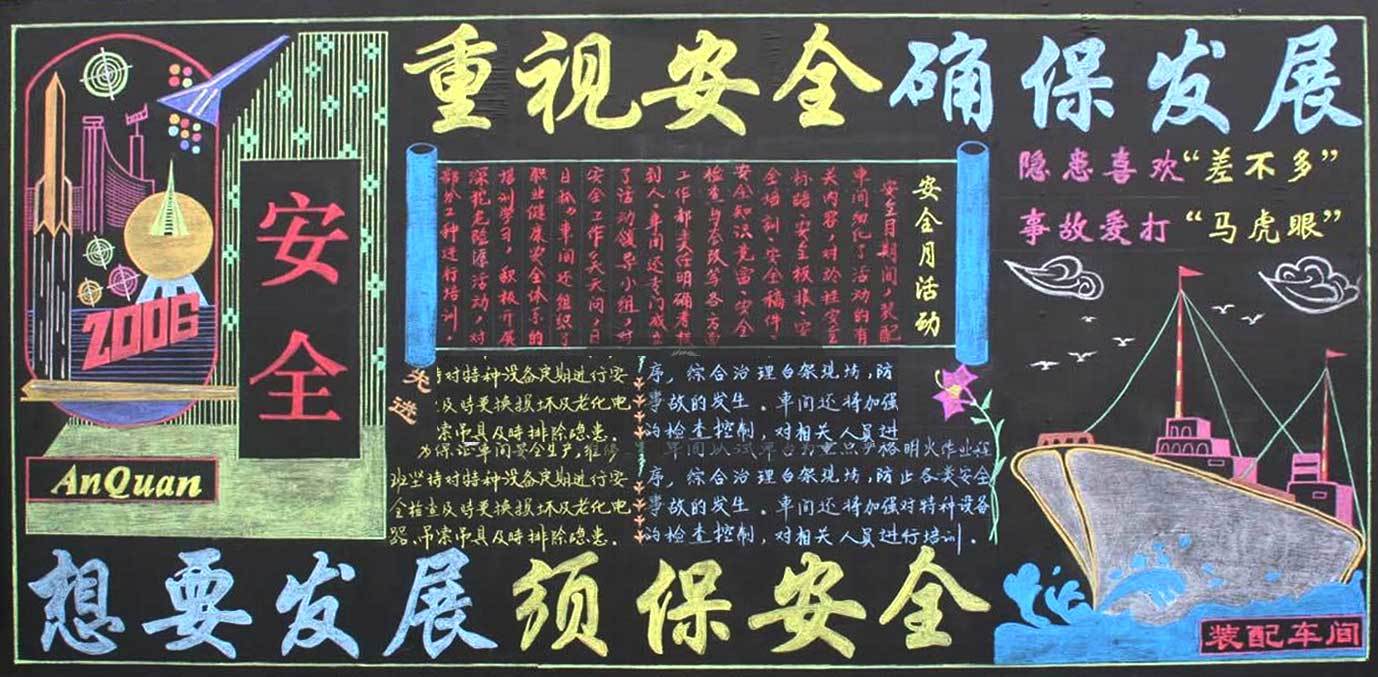 重视安全确保发展
隐患喜欢“差不多”
事故爱打“马虎眼”
安全
2006
AnQuan
安全月活动
安全月期间，装配
车间细化了活动的有
关内容，对於挂安全
标语、安全板报、安
全培训、安全稿件、
安全知识竞赛、安全
检查与整改等各方面
工作都责任明确考核
到人。车间还专门成立
了活动领导小组，对
安全工作“天天问，日
日抓”，车间还组织了
职业健康安全体系的
培训学习，积极开展
深挖危险源活动，对
部分工种进行培训，
先进
持对特种设备定期进行安
及時更换损坏及老化电
索吊具及時排除隐患.
为保证车间安全生产，维修
班坚持对特种设备定期进行安
全检查及時更换损坏及老化电
器、吊索吊具及時排除隐患.
序，综合治理台架现场，防
事故的发生。车间还将加强
的检查控制，对相关人员进
车间以试车台为重点严格明火作业程
序，综合治理台架现场，防止各类安全
事故的发生。车间还将加强对特种设备
的检查控制，对相关人员进行培训.
想要发展须保安全
装配车间